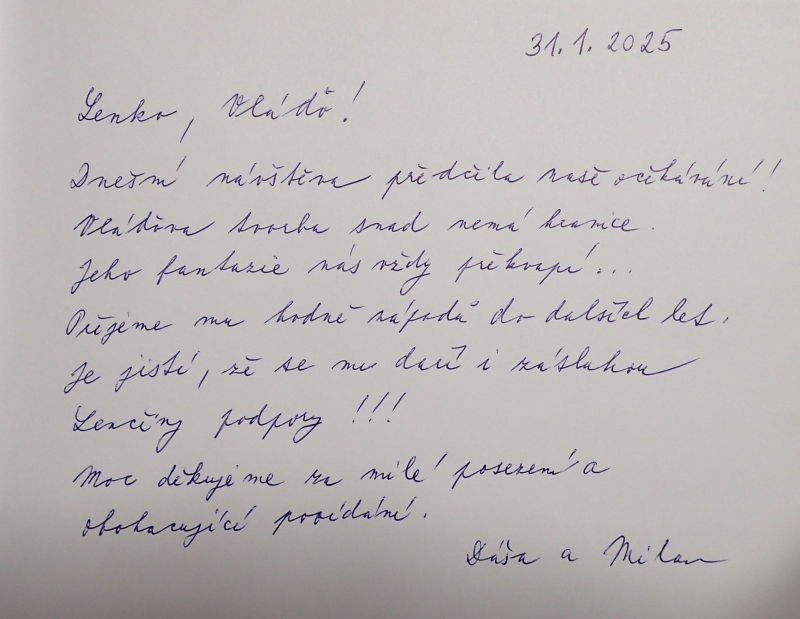 31.1.2025
Lenko, Vláďo!
Dnešní návštěva předčila naše očekávání!
Vláďova tvorba snad nemá hranice.
Jeho fantazie nás vždy překvapí...
Přejeme mu hodně nápadů do dalších let.
Je jisté, že se mu daří i zásluhou
Lenčiny podpory!!!
Moc děkujeme za milé posezení a
obohacující povídání.
Dáša a Milan